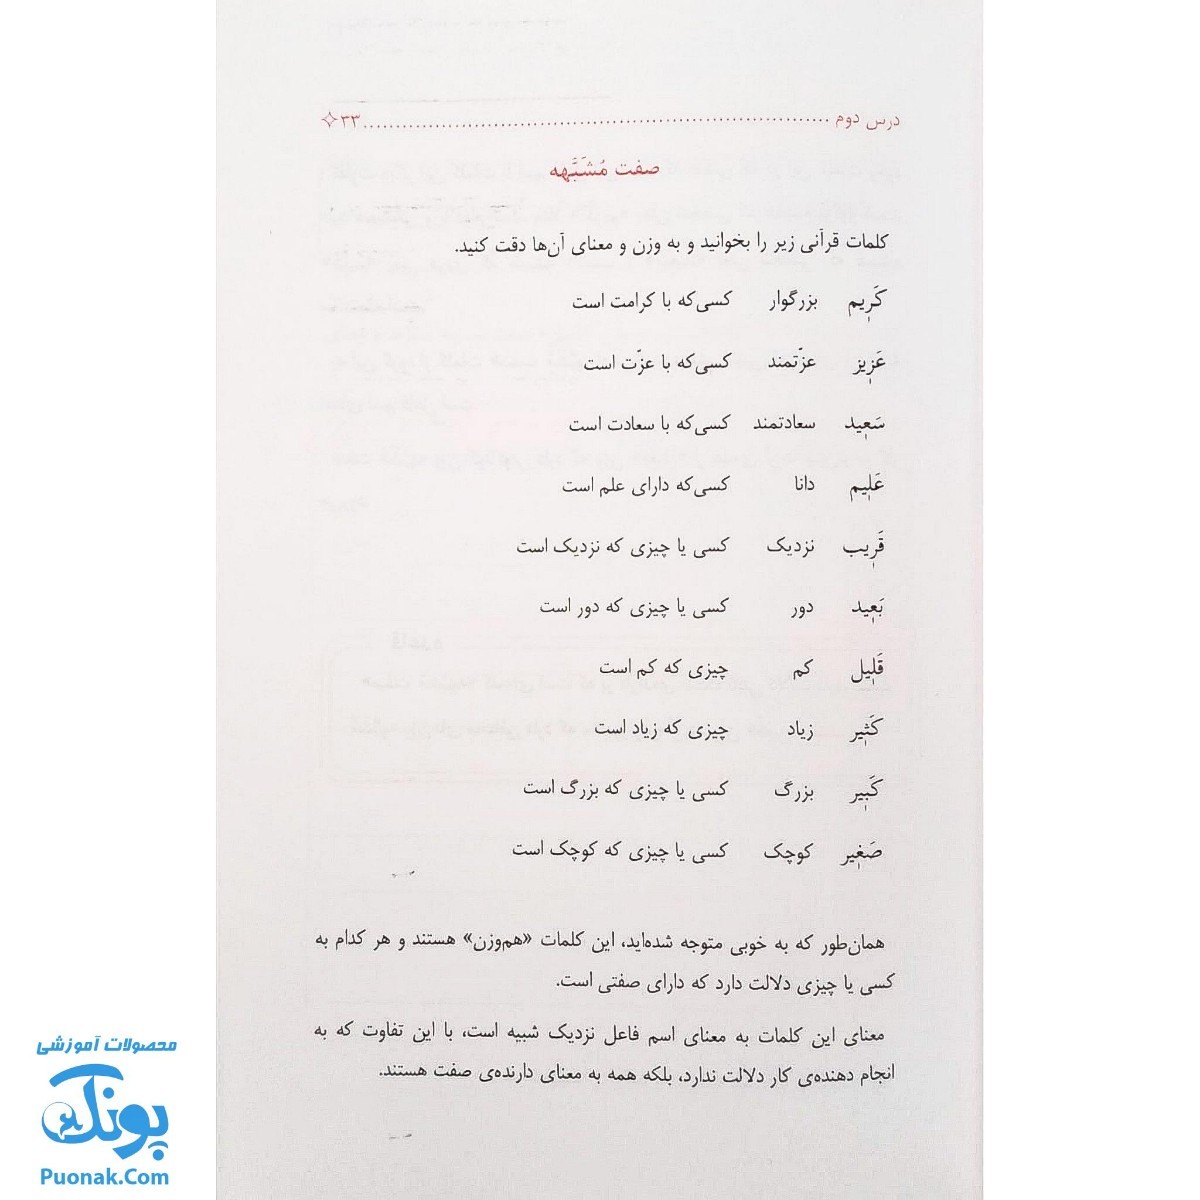 درس دوم ........................................................................ ۳۳
صفت مُشَبَّهه
کلمات قرآنی زیر را بخوانید و به وزن و معنای آن‌ها دقت کنید.
کَریم بزرگوار کسی‌که با کرامت است
عَزیز عزّتمند کسی‌که با عزّت است
سَعید سعادتمند کسی‌که با سعادت است
عَلیم دانا کسی‌که دارای علم است
قَریب نزدیک کسی یا چیزی که نزدیک است
بَعید دور کسی یا چیزی که دور است
قَلیل کم چیزی که کم است
کَثیر زیاد چیزی که زیاد است
کَبیر بزرگ کسی یا چیزی که بزرگ است
صَغیر کوچک کسی یا چیزی که کوچک است
همان‌طور که به خوبی متوجه شده‌اید، این کلمات «هم‌وزن» هستند و هر کدام به
کسی یا چیزی دلالت دارد که دارای صفتی است.
معنای این کلمات به معنای اسم فاعل نزدیک شبیه است، با این تفاوت که به
انجام دهنده‌ی کار دلالت ندارد، بلکه همه به معنای دارنده‌ی صفت هستند.
محصولات آموزشی
پونک
Puonak.Com